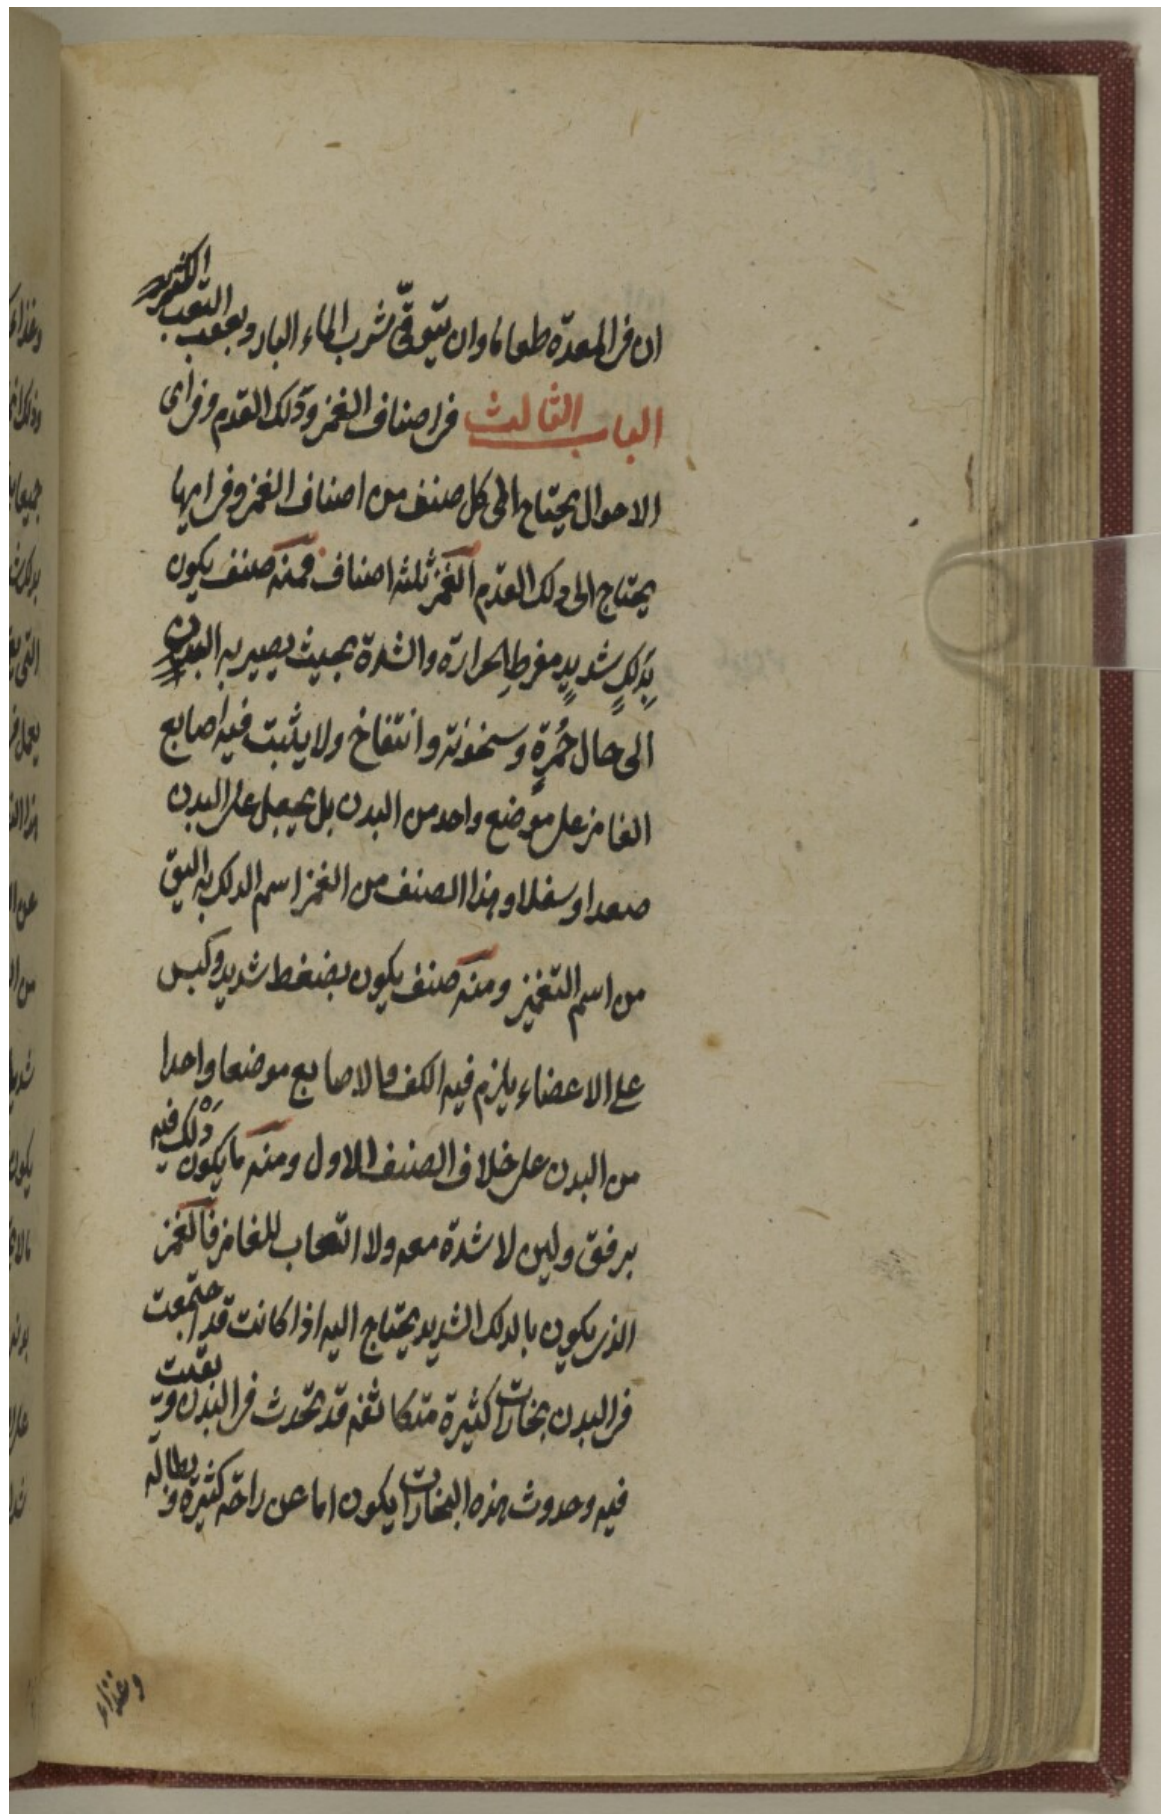 ان في المعدة طعاما وان يتوقى شرب الماء البارد وبعقب التعب الكثير
الباب الثالث في اصناف الغمز ودلك القدم وفي اى
الاحوال يحتاج الى كل صنف من اصناف الغمز وفي ايها
يحتاج الى دلك القدم الغمز ثلثه اصناف فمنه صنف يكون
بدلك شديد مفرط الحرارة والشدة بحيث يصير به البدن
الى حال حُمرةٍ وسخونة وانتفاخ ولا يثبت فيه اصابع
الغامز على موضع واحد من البدن بل يحمل على البدن
صعدا وسفلا وهذا الصنف من الغمز اسم الدلك به اليق
من اسم التغميز ومنه صنف يكون بضغط شديد وكبس
على الاعضاء يلزم فيه الكف والاصابع موضعا واحدا
من البدن على خلاف الصنف الاول ومنه ما يكون دلك فيه
برفق ولين لا شدة معه ولا اتعاب للغامز فالغمز
الذى يكون بالدلك الشديد يحتاج اليه اذا كانت قد اجتمعت
في البدن بخارات كثيرة متكاثفه قد تحدث في البدن وبقيت
فيه وحدوث هذه البخارات يكون اما عن راحة كثيرة وبطاله
وغذاء